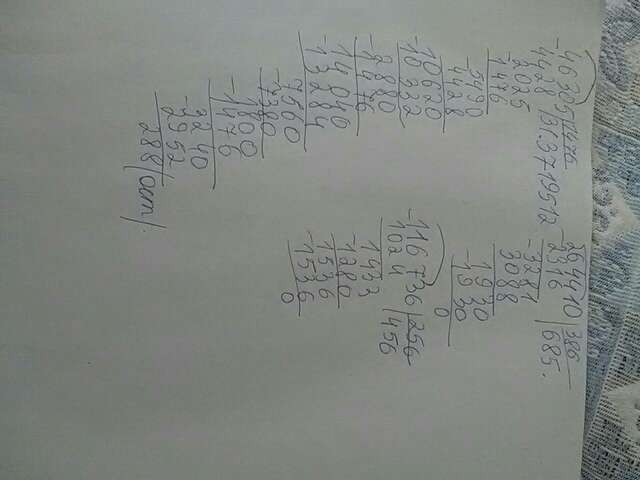 -46305 | 1476
4428 | 31,3719512
-2025
1476
-5490
4428
-10620
10332
-2880
1476
-14040
13284
-7560
7380
-1800
1476
-3240
2952
288 (ост).
-264410 | 386
2316 | 685.
-3281
3088
-1930
1930
0
-116736 | 256
1024 | 456
-1433
1280
-1536
1536
0